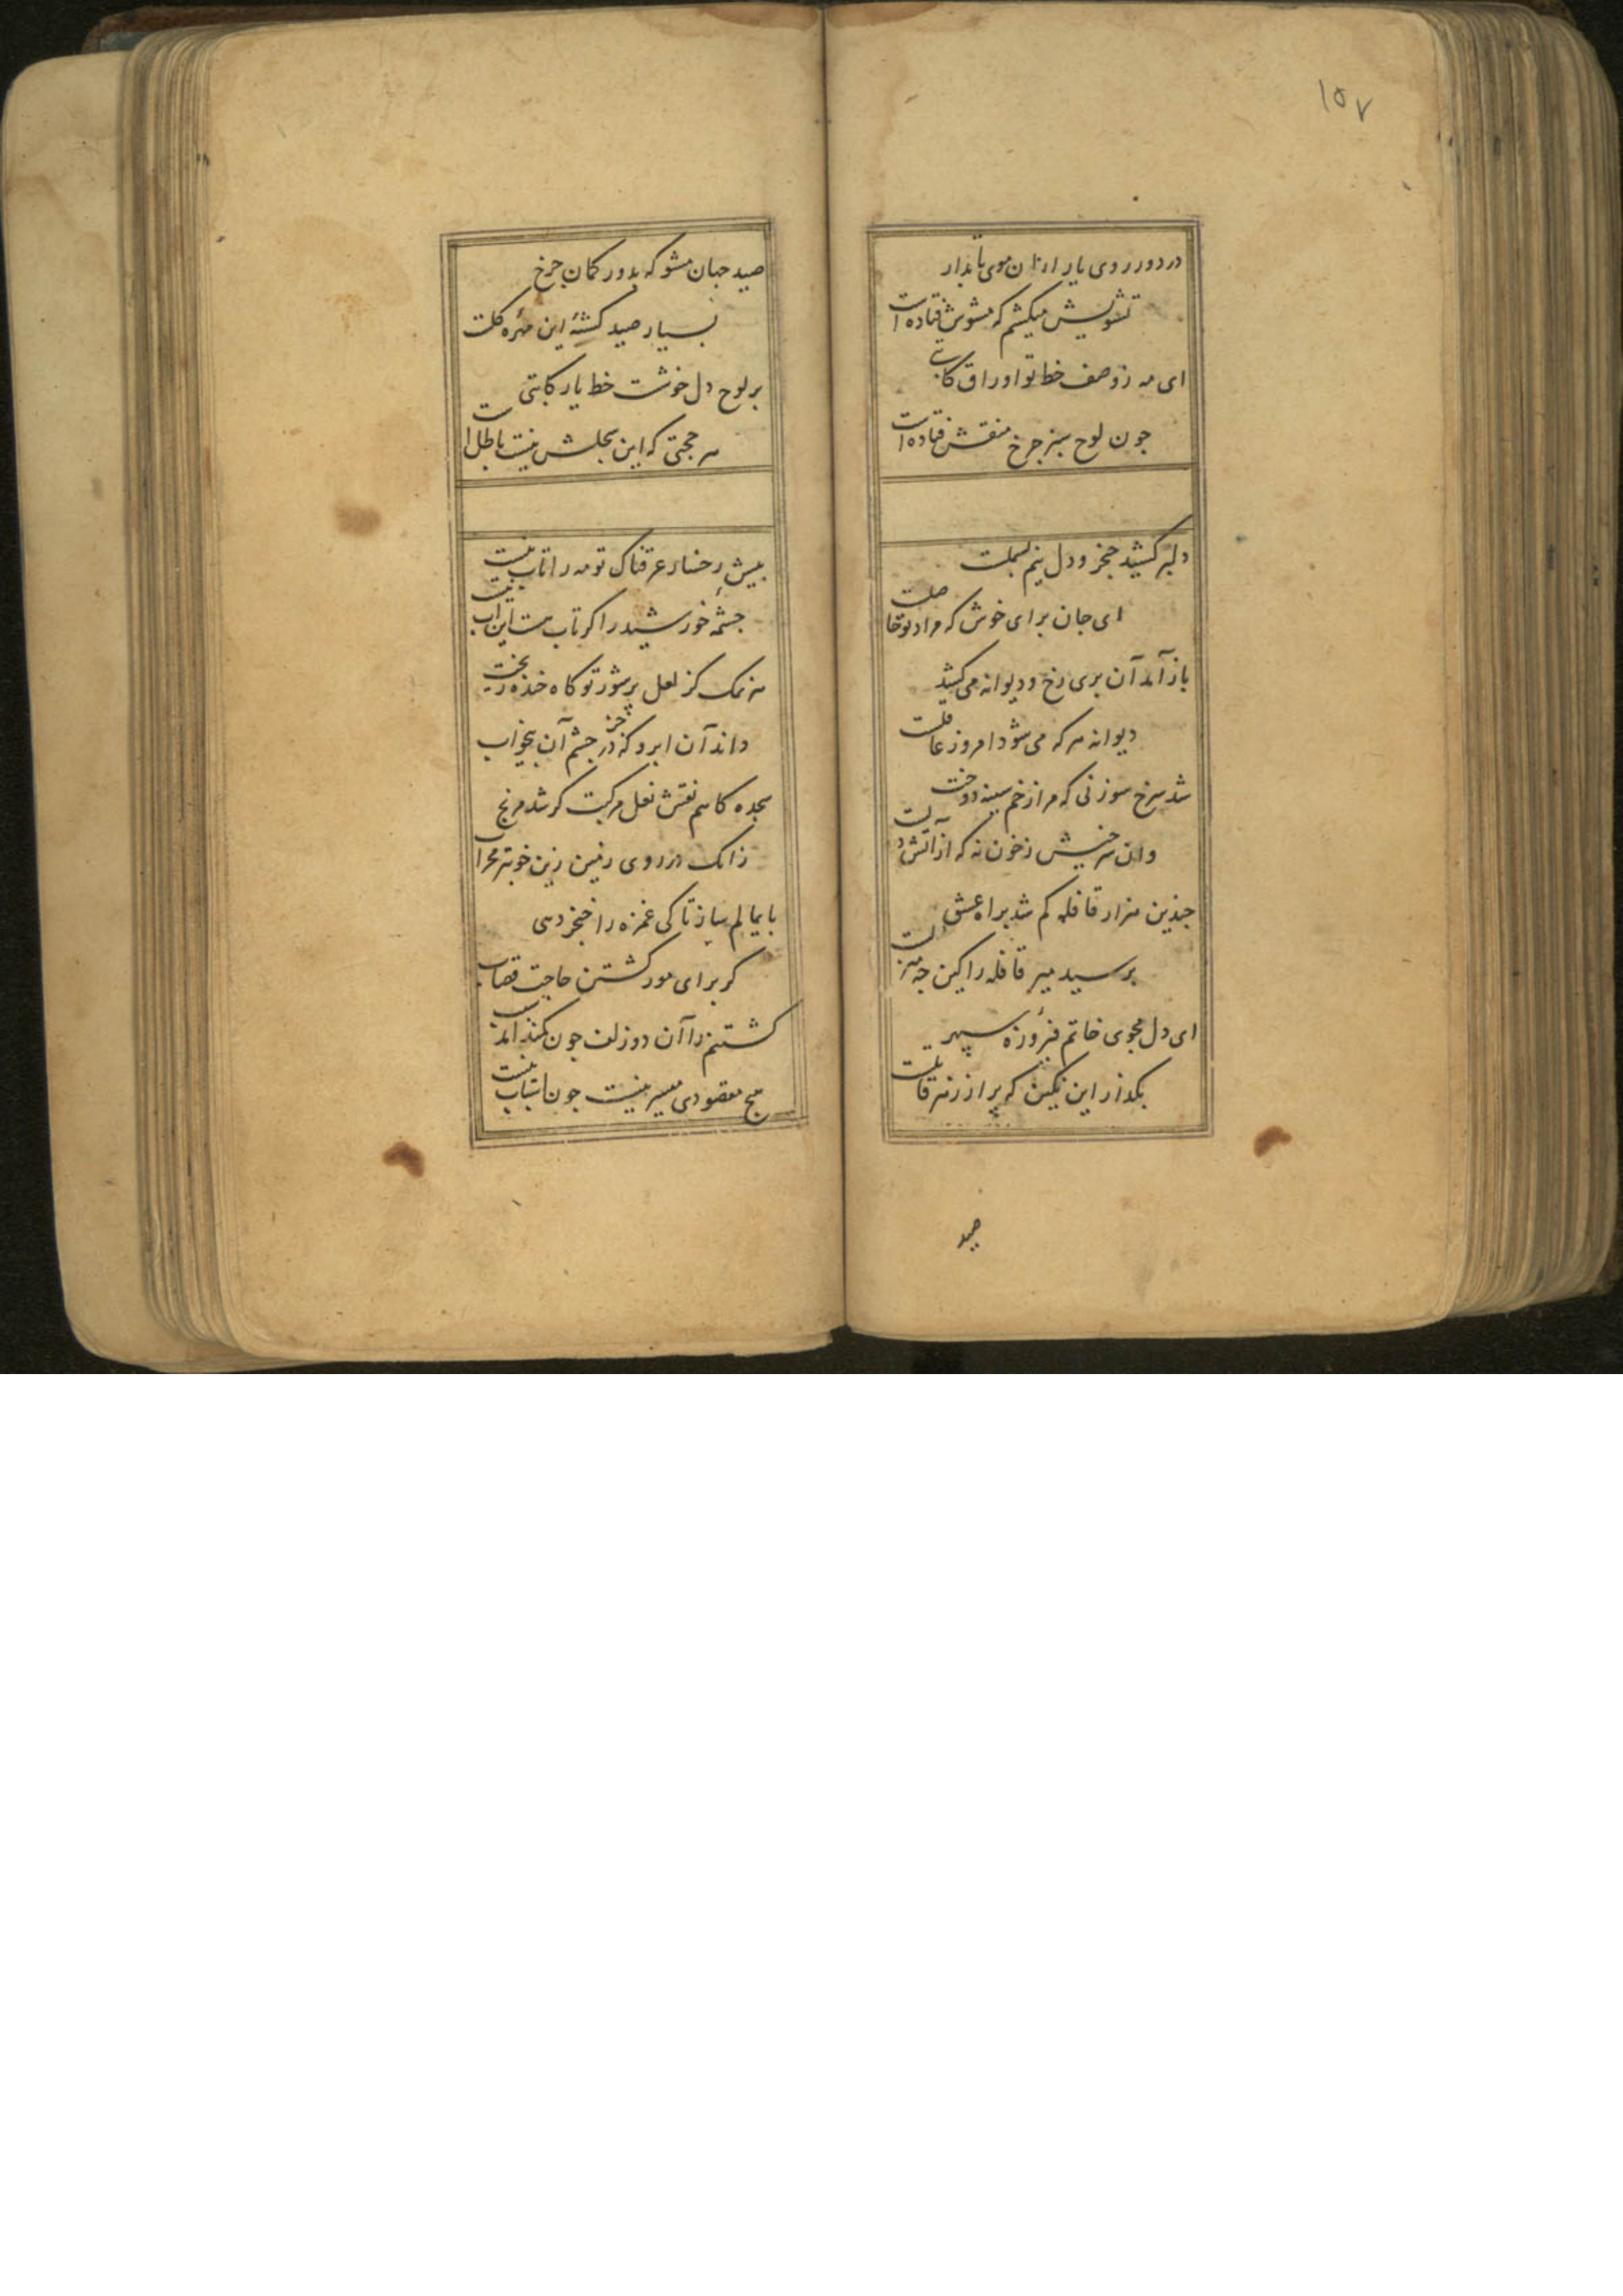 ۱۵۷
در دور روی یار ازان موی تابدار
تشویش میکشم که مشوش فتاده است
ای مه ز وصف خط تو اوراق کاتبی
چون لوح سبز چرخ منقش فتاده است
دلبر کشید خنجر و دل نیم بسملست
ای جان برای خوش که مراد تو حاصلست
باز آمد آن بری رخ و دیوانه می کشد
دیوانه هر که می شود امروز عاقلست
شد سرخ سوزنی که مرا زخم سینه دوخت
وان سرخیش ز خون نه که از آتش دلست
جندین هزار قافله کم شد براه عشق
برسید میر قافله را کین جه منزلست
ای دل مجوی خاتم فیروزه سپهر
بکذار این نکین که پر از زهر قاتلست
صید
صید جهان مشو که بدور کمان جرخ
بسیار صید کشتهٔ این مهره کلست
بر لوح دل خوشت خط یار کاتبی
هر حجتی که این سجلش نیست باطل است
بیش رخسار عرقناک تو مه را تاب نیست
جشمهٔ خورشید را اکر تاب هست این آب نیست
هر نمک کز لعل پر شور تو کاه خنده ریخت
داند آن ابرو که جز در جشم آن بیخواب
سجده کاهم نقش نعل مرکبت کر شد مرنج
زانک در روی زمین زین خوبتر محراب
بایمالم ساز تا کی غمزه را خنجر دهی
کر برای مور کشتن حاجت قصاب
کشتنم را آن دو زلف جون کمند آمد سبب
هیج مقصودی میسر نیست جون اسباب نیست